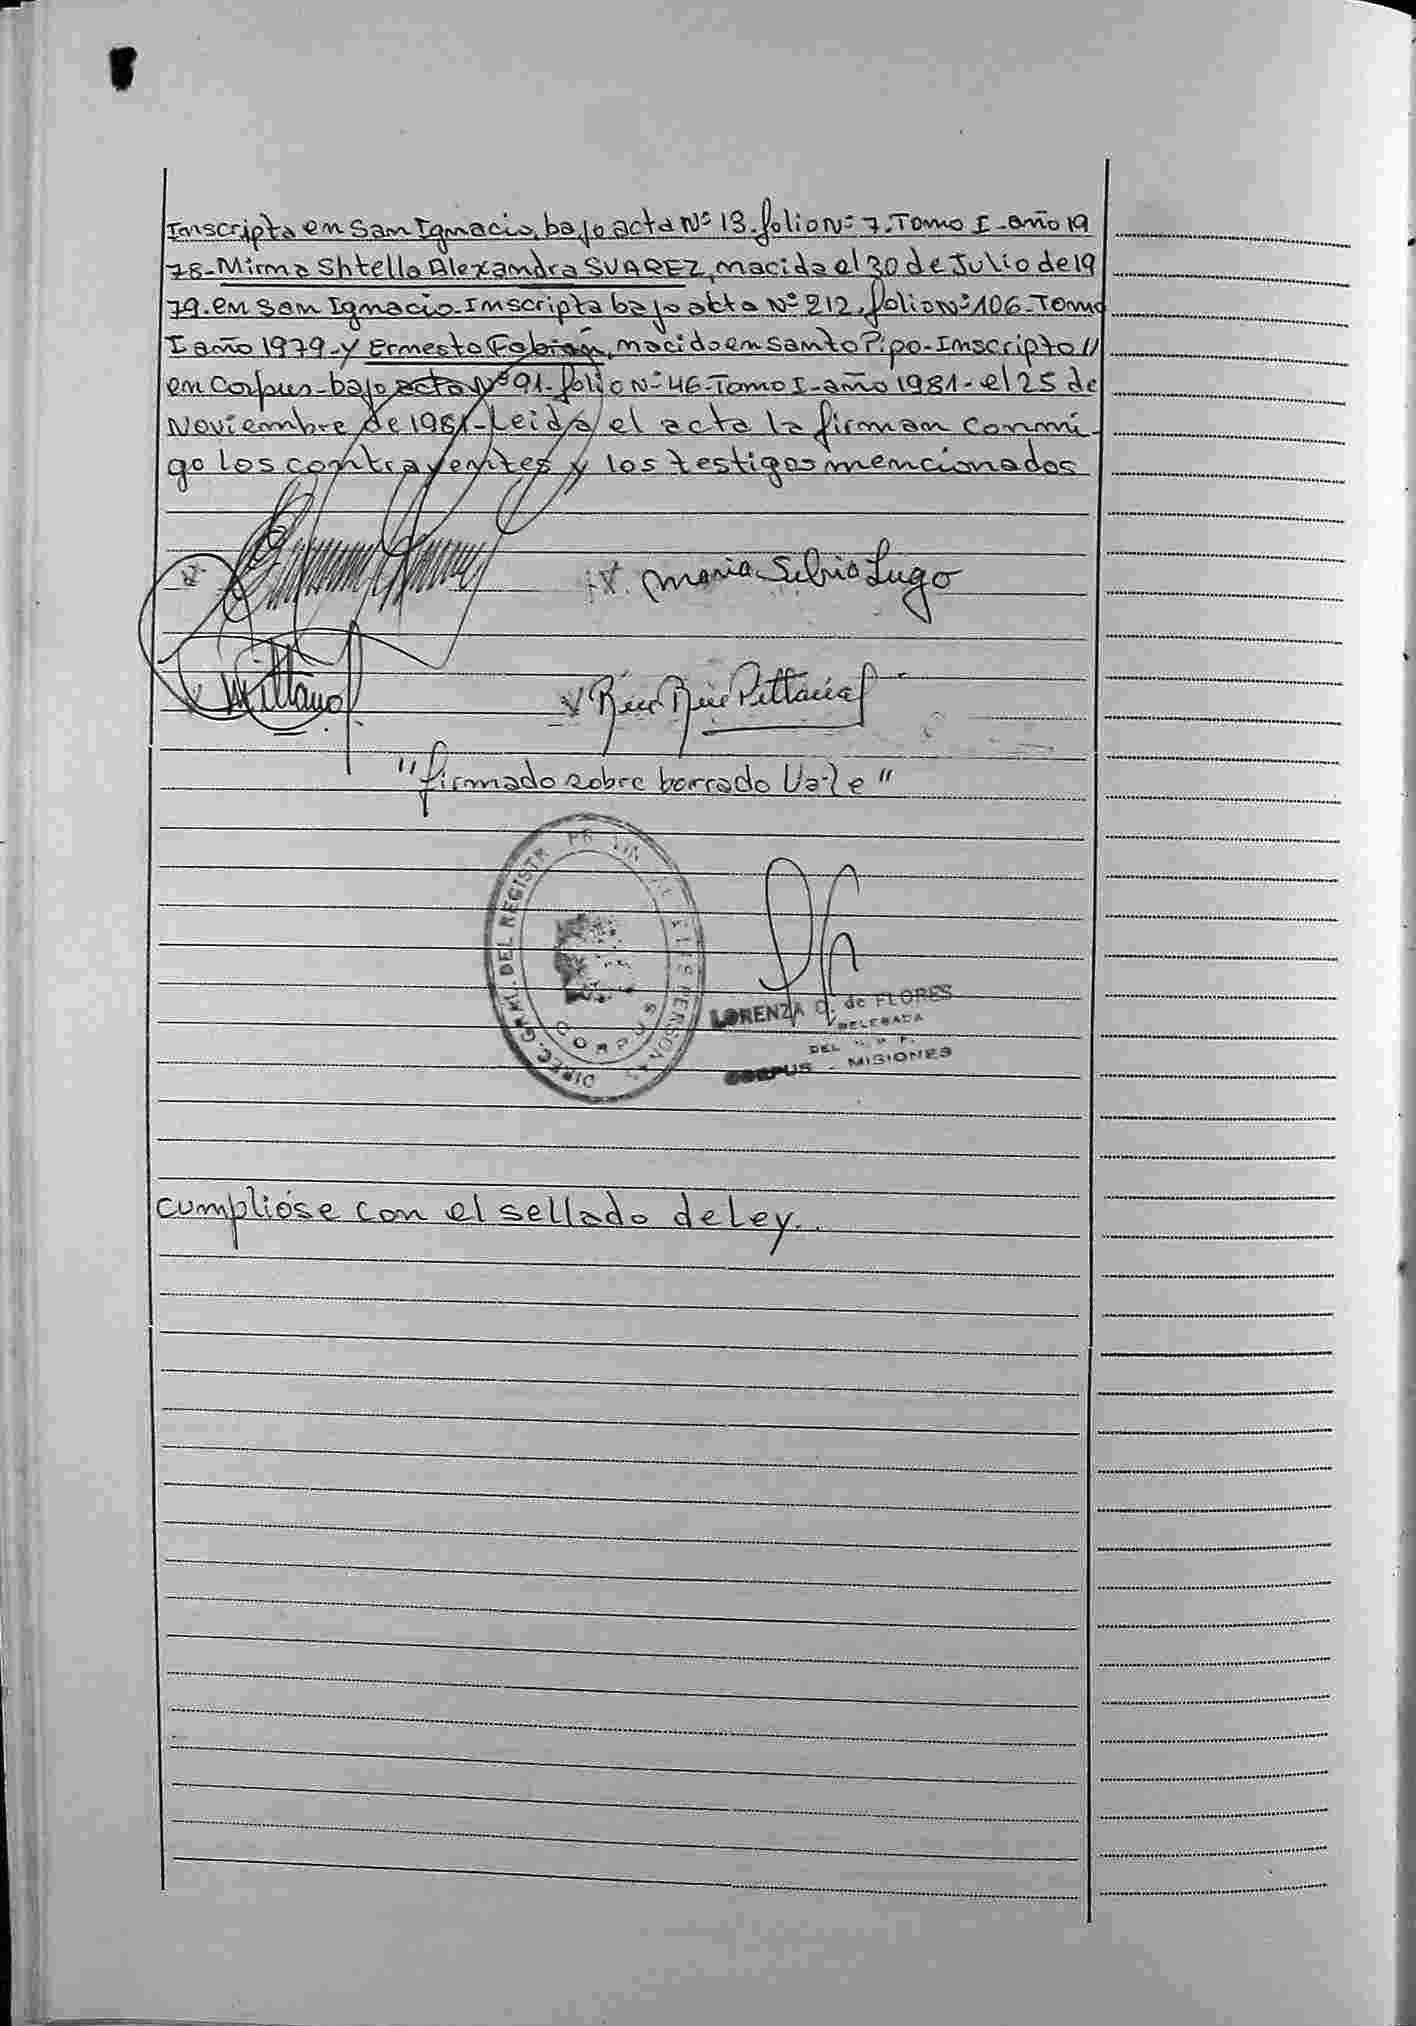 Inscripta en San Ignacio, bajo acta Nº 13. folio Nº 7. Tomo I - año 19
78 - Mirna Shtella Alexandra SUAREZ, nacida el 30 de Julio de 19
79. en San Ignacio - Inscripta bajo acta Nº 212, folio Nº 106 - Tomo
I año 1979 - y Ernesto Fabián, nacido en Santo Pipo - Inscripto
en Corpus - bajo acta Nº 91 - folio Nº 46 - Tomo I - año 1981 - el 25 de
Noviembre de 1981 - Leida el acta la firman conmi-
go los contrayentes y los testigos mencionados
Maria Silvia Lugo
"firmado sobre borrado Vale"
DIREC. GRAL. DEL REGISTR PERSONAS
CORPUS
LORENZA Q. de FLORES
DELEGADA
DEL
CORPUS - MISIONES
cumplióse con el sellado de Ley..